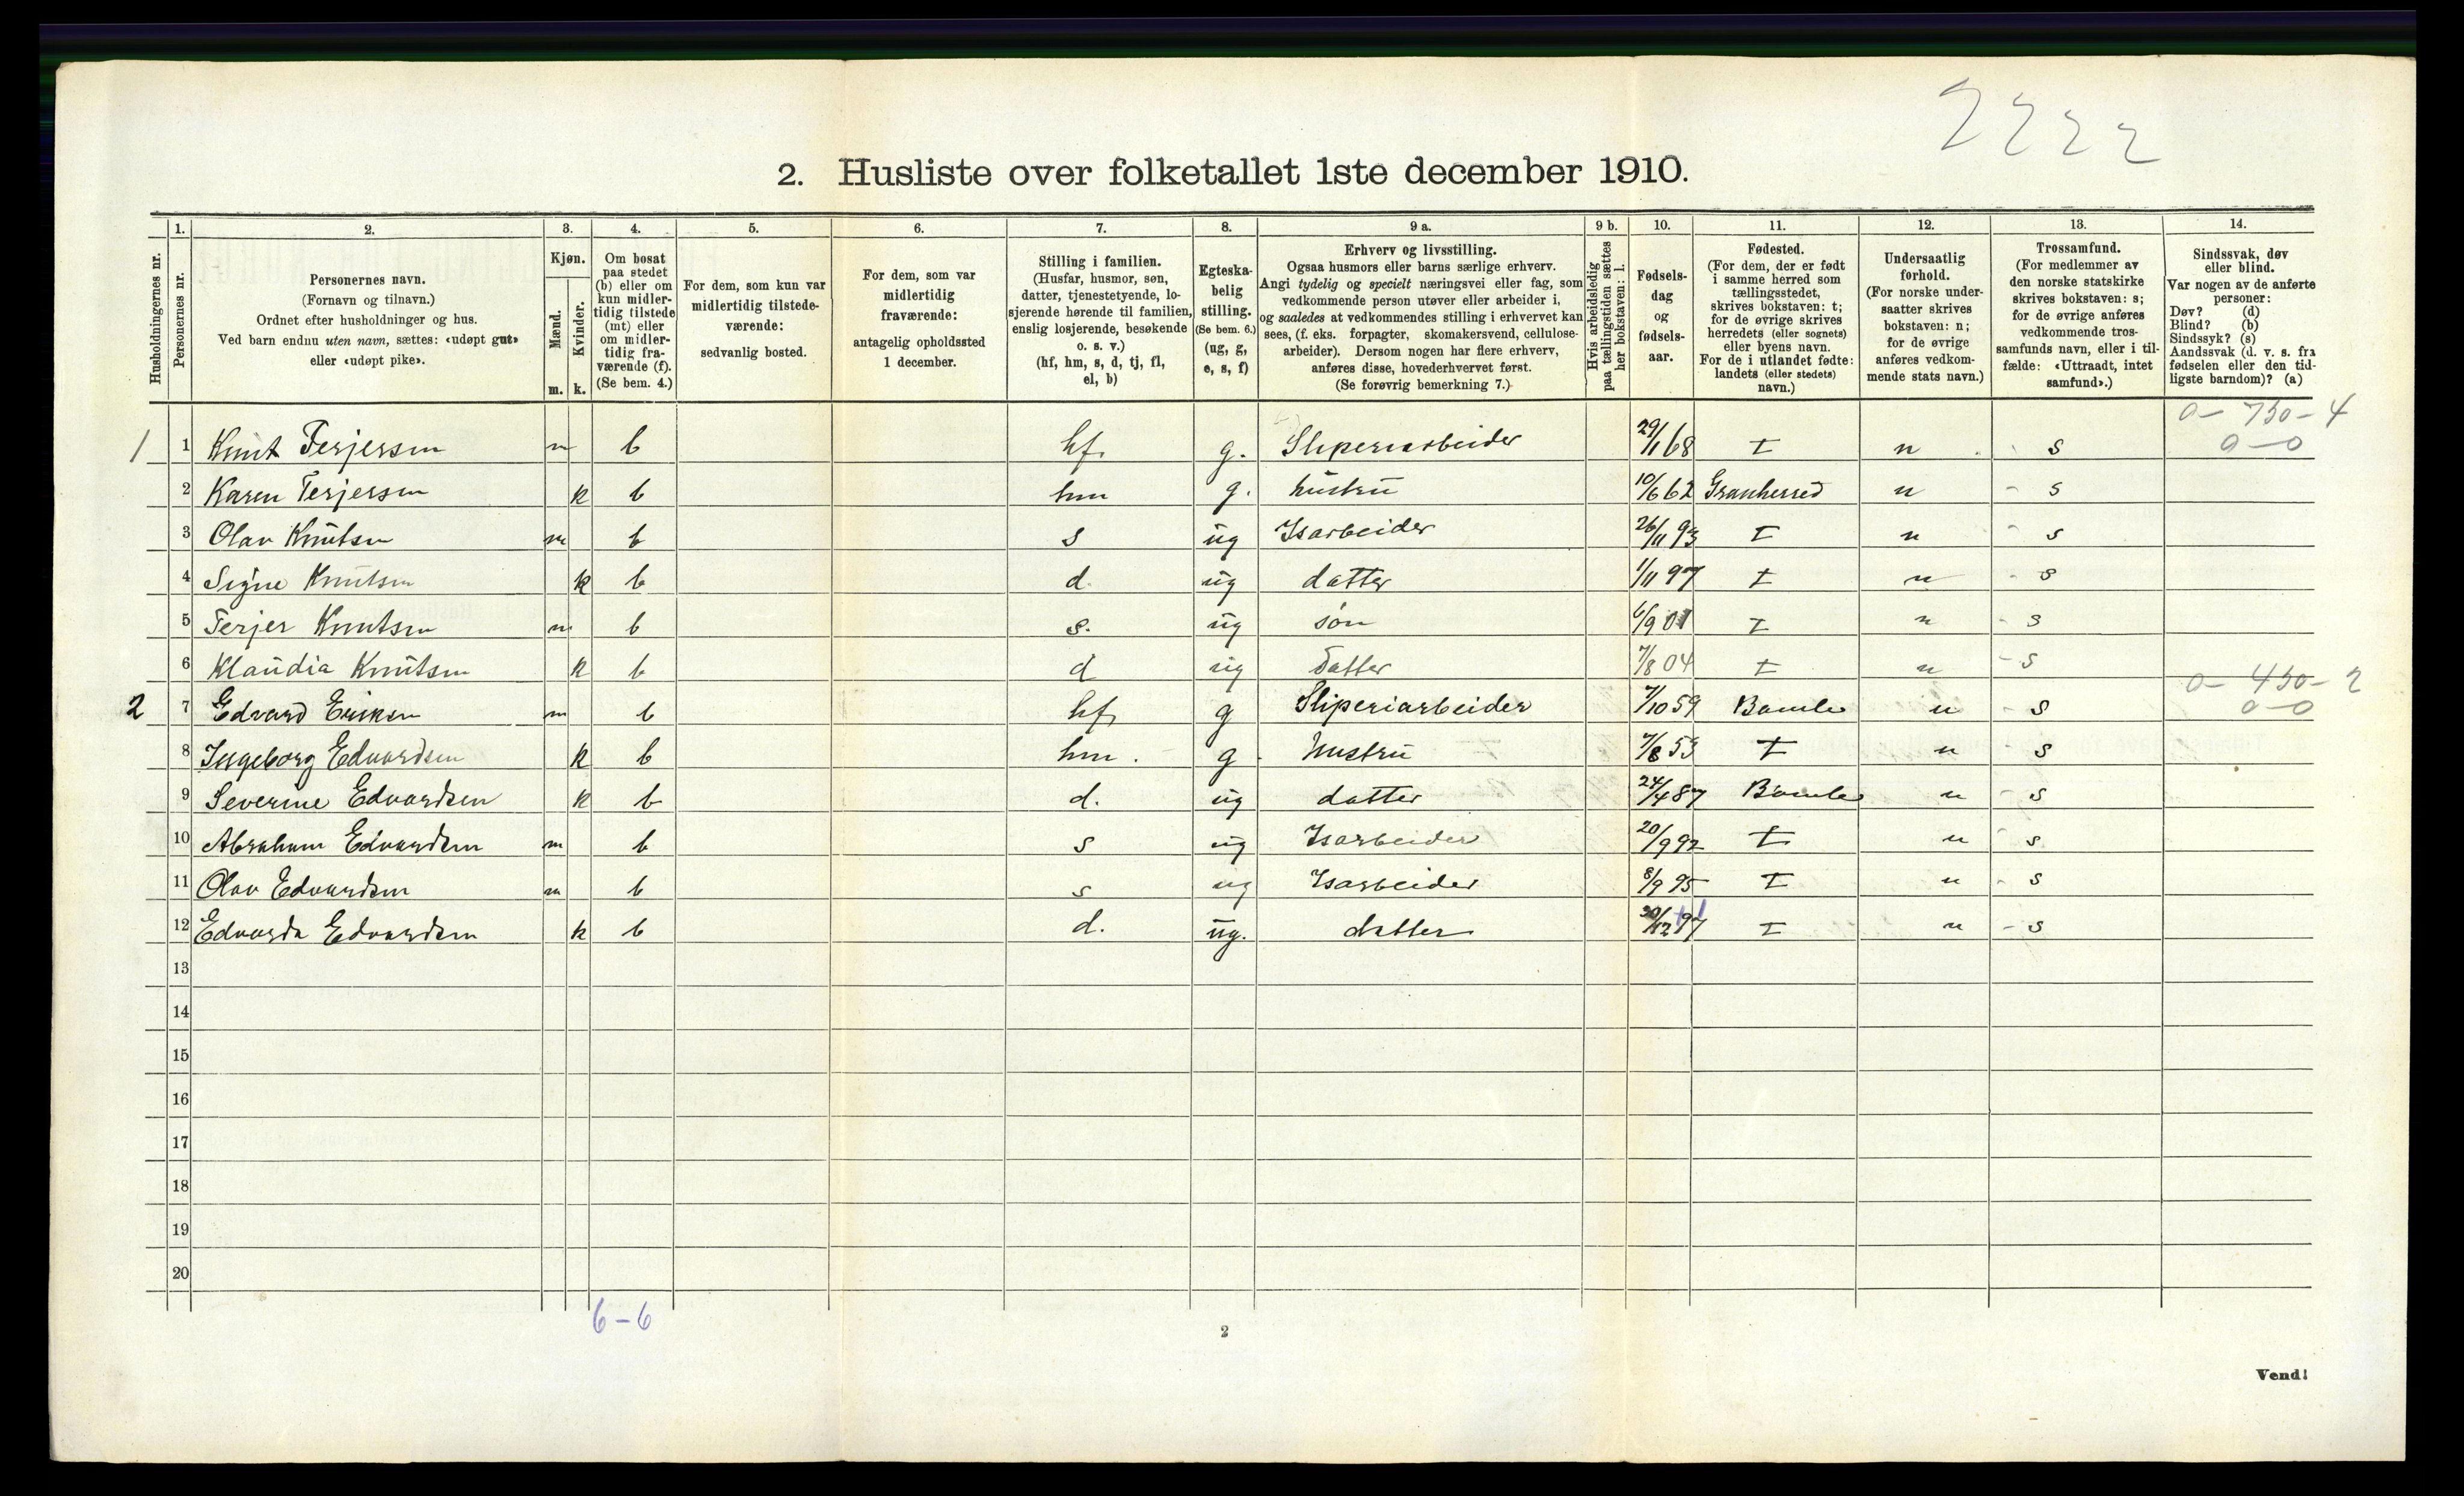 2222
2. Husliste over folketallet 1ste december 1910.
Husholdningernes nr.
1. Personernes nr.
2. Personernes navn. (Fornavn og tilnavn.) Ordnet efter husholdninger og hus. Ved barn endnu uten navn, sættes: «udøpt gut» eller «udøpt pike».
3. Kjøn. Mænd. m. Kvinder. k.
4. Om bosat paa stedet (b) eller om kun midlertidig tilstede (mt) eller om midlertidig fraværende (f). (Se bem. 4.)
5. For dem, som kun var midlertidig tilstedeværende: sedvanlig bosted.
6. For dem, som var midlertidig fraværende: antagelig opholdssted 1 december.
7. Stilling i familien. (Husfar, husmor, søn, datter, tjenestetyende, losjerende hørende til familien, enslig losjerende, besøkende o. s. v.) (hf, hm, s, d, tj, fl, el, b)
8. Egteskabelig stilling. (Se bem. 6.) (ug, g, e, s, f)
9 a. Erhverv og livsstilling. Ogsaa husmors eller barns særlige erhverv. Angi tydelig og specielt næringsvei eller fag, som vedkommende person utøver eller arbeider i, og saaledes at vedkommendes stilling i erhvervet kan sees, (f. eks. forpagter, skomakersvend, cellulosearbeider). Dersom nogen har flere erhverv, anføres disse, hovederhvervet først. (Se forøvrig bemerkning 7.)
9 b. Hvis arbeidsledig paa tællingstiden sættes her bokstaven: l.
10. Fødselsdag og fødselsaar.
11. Fødested. (For dem, der er født i samme herred som tællingsstedet, skrives bokstaven: t; for de øvrige skrives herredets (eller sognets) eller byens navn. For de i utlandet fødte: landets (eller stedets) navn.)
12. Undersaatlig forhold. (For norske undersaatter skrives bokstaven: n; for de øvrige anføres vedkommende stats navn.)
13. Trossamfund. (For medlemmer av den norske statskirke skrives bokstaven: s; for de øvrige anføres vedkommende trossamfunds navn, eller i tilfælde: «Uttraadt, intet samfund».)
14. Sindssvak, døv eller blind. Var nogen av de anførte personer: Døv? (d) Blind? (b) Sindssyk? (s) Aandssvak (d. v. s. fra fødselen eller den tidligste barndom)? (a)
0 - 730 - 4
1 1 Knut Terjersen m b hf. g. Sliperiarbeider 29/1 68 t n s 0-0
2 Karen Terjersen k b hm g. hustru 10/6 62 Granherred n - s
3 Olav Knutsen m b s ug Isarbeider 26/11 93 t n - s
4 Signe Knutsen k b d. ug datter 1/11 97 t n - s
5 Terjer Knutsen m b s. ug søn 6/9 01 t n - s
6 Klaudia Knutsen k b d ug Datter 7/8 04 t n - s
0 - 450 - 2
2 7 Edvard Eriksen m b hf. g Sliperiarbeider 7/10 59 Bamle n - s 0-0
8 Ingeborg Edvardsen k b hm. g. hustru 7/8 53 t n - s
9 Severine Edvardsen k b d. ug datter 24/4 87 Bamle n - s
10 Abraham Edvardsen m b s ug Isarbeider 20/9 92 t n - s
11 Olav Edvardsen m b s ug Isarbeider 8/9 95 t n - s
12 Edvarda Edvardsen k b d. ug. datter 97 t n - s
13
14
15
16
17
18
19
20
6-6
2
Vend!